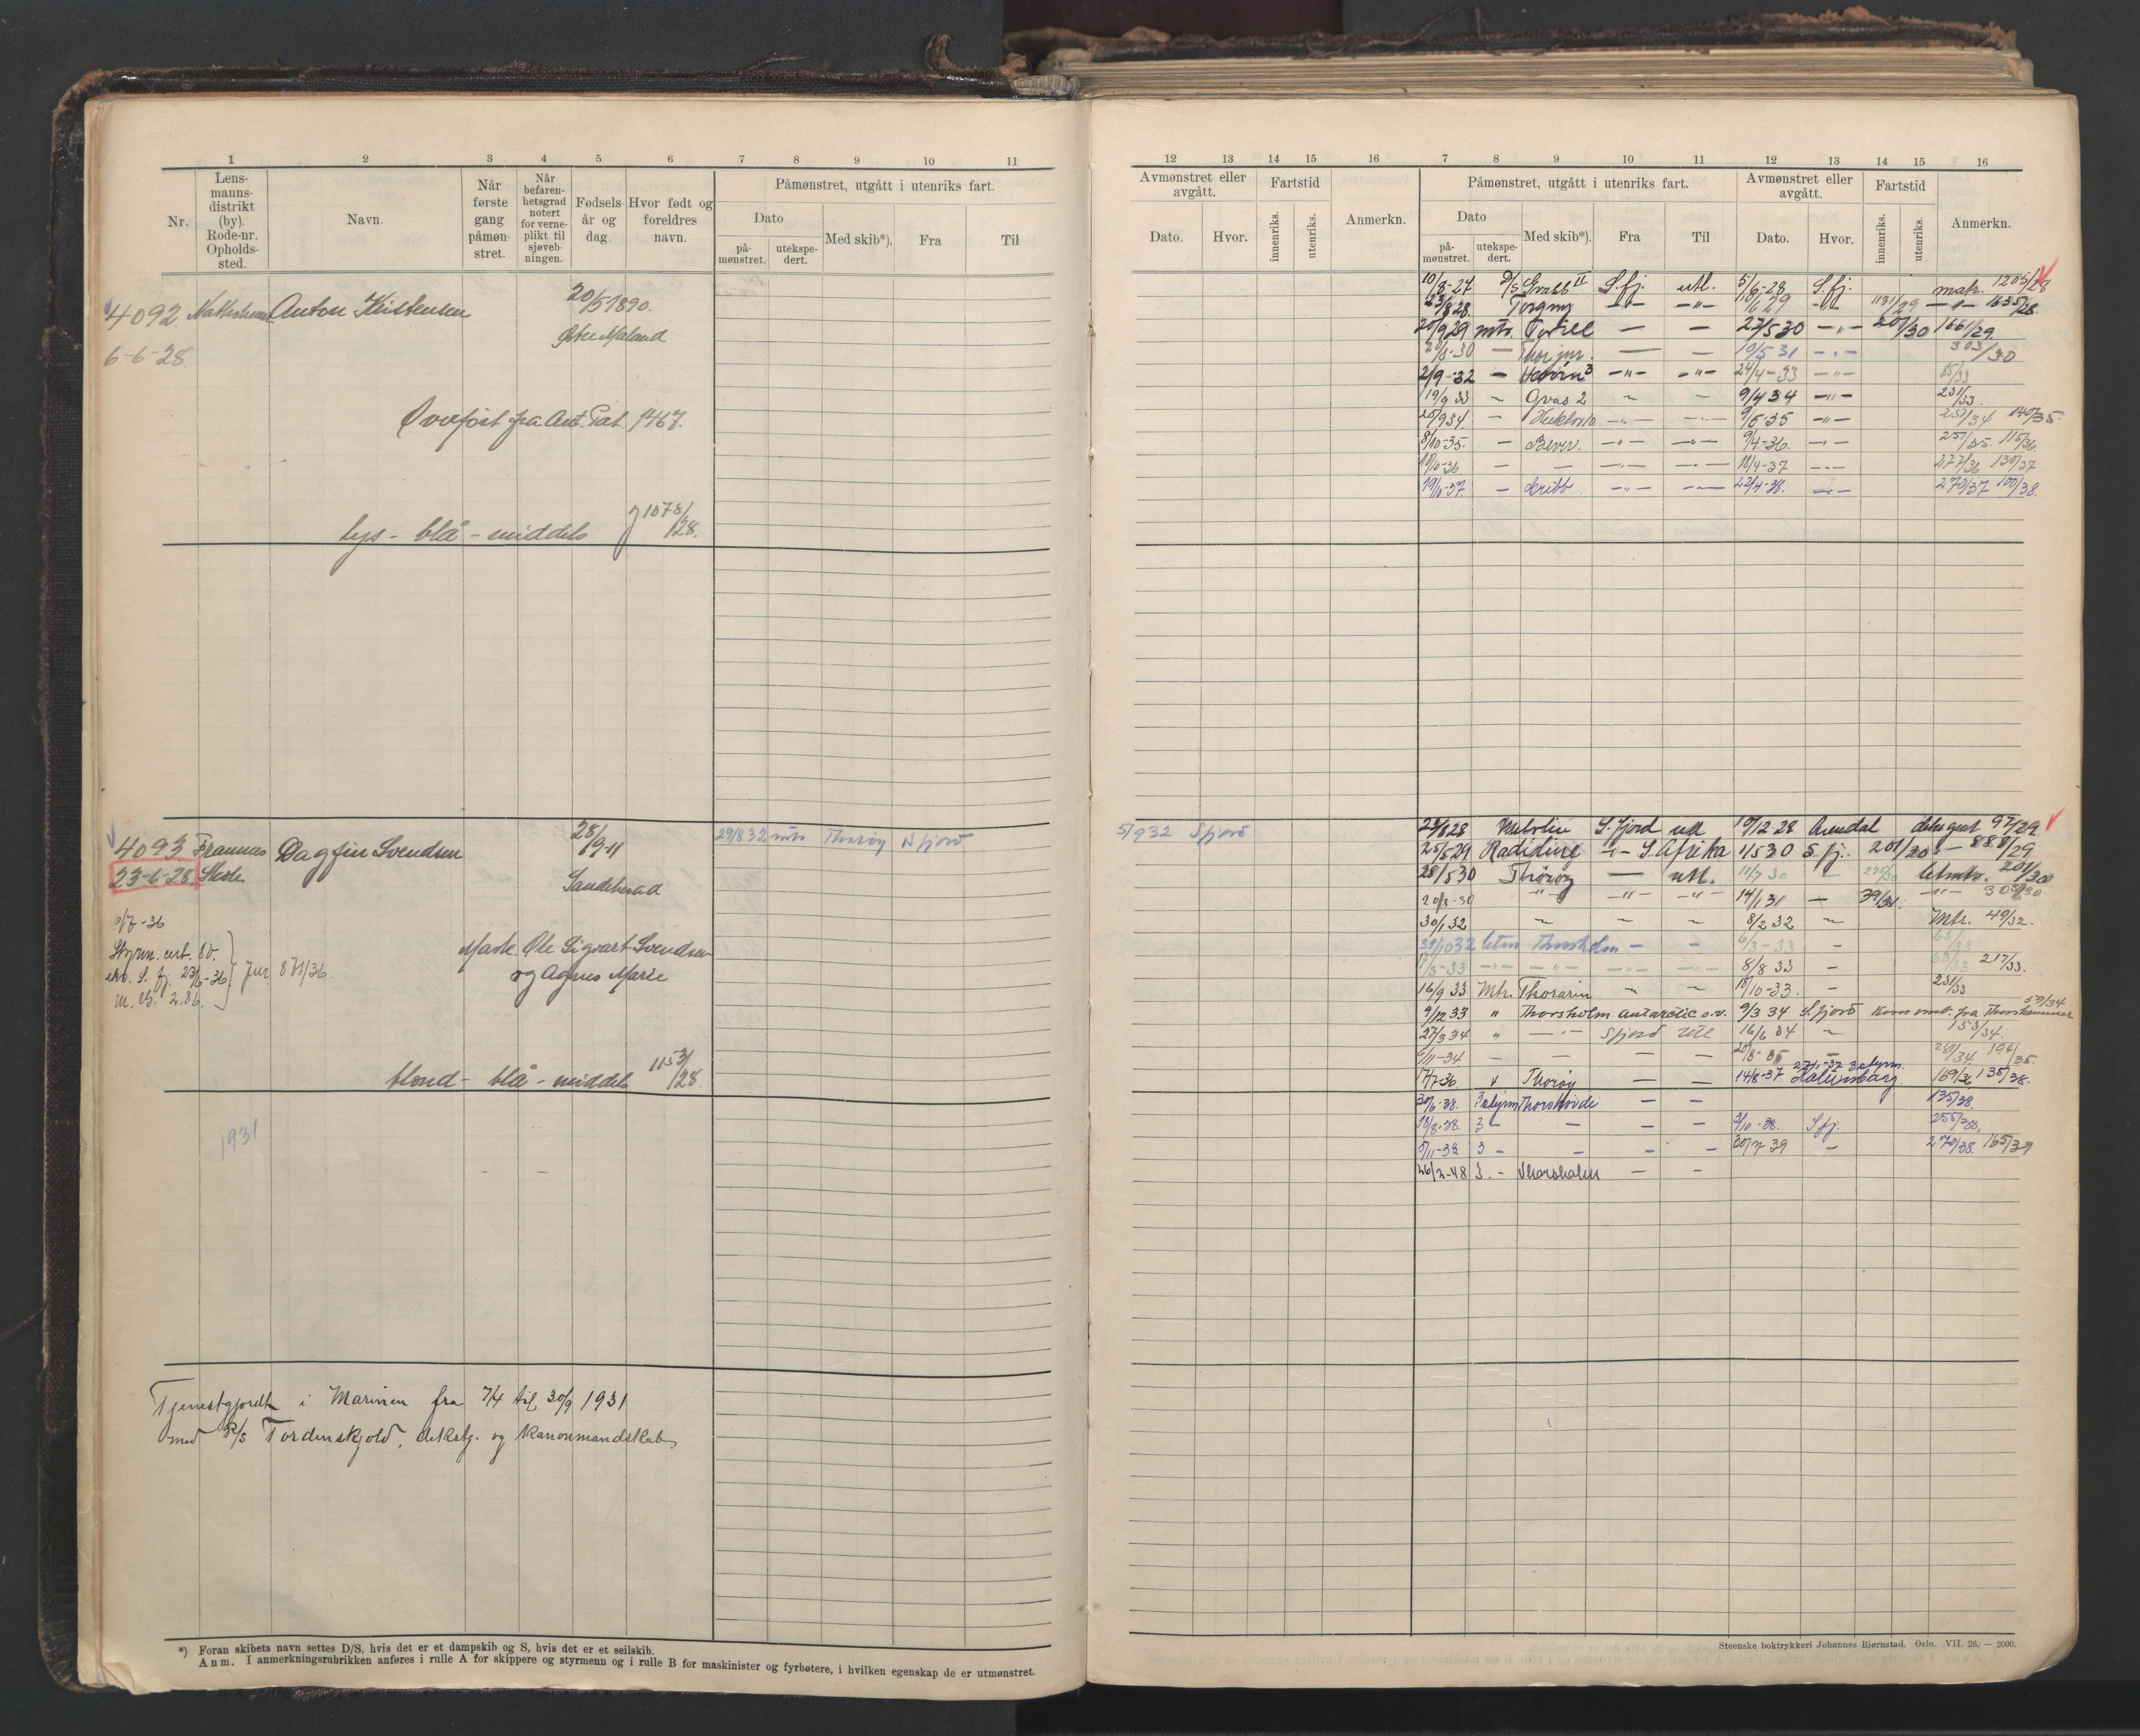 1 2 3 4 5 6 7 8 9 10 11
Nr.
Lens-
manns-
distrikt
(by).
Rode-nr.
Opholds-
sted.
Navn.
Når
første
gang
påmøn-
stret.
Når
befaren-
hetsgrad
notert
for verne-
plikt til
sjøveb-
ningen.
Fødsels-
år og
dag.
Hvor født og
foreldres
navn.
Påmønstret, utgått i utenriks fart.
Dato
på-
mønstret.
utekspe-
dert.
Med skib*).
Fra
Til
4092. Anton Kristensen 20/5 1890.
6-6-28.
Overført fra Ant. Pat. 1467.
lys - blå - middels J 1078/28.
4093. Framnes Dagfin Svendsen 28/9-11 29/8 32 mtr Thorøy Sfjord
23-6-28. Skole
Sandeherad
6/7-36
Styrm. cert. 80.
S. fj. 23/6-36 Jur. 871/36.
Matr. Ole Sigvart Svendsen
og Agnes Marie
blond - blå - middels 1153/28.
1931
Tjenestgjordt i Marinen fra 7/4 til 30/9 1931
med P/S Tordenskjold, deksfj. og Kanonmandskab.
*) Foran skibets navn settes D/S, hvis det er et dampskib og S, hvis det er et seilskib.
Anm. I anmerkningsrubrikken anføres i rulle A for skippere og styrmenn og i rulle B for maskinister og fyrbøtere, i hvilken egenskap de er utmønstret.
12 13 14 15 16 7 8 9 10 11 12 13 14 15 16
Avmønstret eller
avgått.
Dato.
Hvor.
Fartstid
innenriks.
utenriks.
Anmerkn.
Påmønstret, utgått i utenriks fart.
Dato
på-
mønstret.
utekspe-
dert.
Med skib*).
Fra
Til
Avmønstret eller
avgått.
Dato.
Hvor.
Fartstid
innenriks.
utenriks.
Anmerkn.
10/8-27 D/S Graab II S.fj. utl. 5/6-28 S.fj. matr. 1205/28
23/8 28. Torgny -"- -"- 11/6 29 -"- 1131/29 -"- 1635/28.
20/9 29 mtr. Torill — — 27/5 30 -"- 201/30 1661/29.
20/8-30 — Thor jnr. — — 10/5 31 -"- 303/30
2/9-32 — -"- -"- 24/4-33 -"- 85/33
19/9 33 ~ Gvas 2 ~ ~ 9/4 34 -"- 231/33.
25/9 34 - -"- -"- 9/5-35 -"- 257/34 140/35.
8/10-35. - Bever. -"- -"- 9/4-36. -"- 251/35. 115/36
10/10-36 — — -"- -"- 18/4-37 -"- 277/36 130/37
19/10-37. — Skribb -"- -"- 22/4-38. -"- 270/37 100/38.
5/9 32 Sfjord
23/8 28 S.fjord utl 19/12-28 Arendal 97/29.
25/5 29 Radidine -"- S.Afrika 1/5 30 S.fj. 201/30 -"- 888/29
28/5 30 Thorøy — utl. 11/7 30 — letmtr. 201/30
20/8-30 " -"- -"- 14/1 31 — 39/31. -"- 303/30
30/1 32 ~ ~ ~ 8/2 32 ~ Mtr. 49/32.
31/10 32 letm Thorsholm - - 6/3-33 - 63/33
7/3-33 -"- -"- -"- -"- 8/8 33 - 63/33 217/33.
16/9 33 Mtr. Thorarin ~ ~ 18/10-33. - 231/33
9/12 33 " Thorsholm Antarctic o.v. 9/3 34 S.fjord Kom omb. fra Thorshammer 59/34
27/3 34 " -"- Sfjord Utl 16/6 34 ~ 153/34.
6/11-34 — — — — 20/8-35 — 281/34. 194/35.
17/7-36 " Thorøy — — 14/8-37 169/36 135/38.
27/1-37 3 styrm.
30/6-38. 3 styrm Thorshövdi — — 135/38.
18/8-38. 3 — — — — 3/10-38. S.fj. 255/38.
5/11-38 3 — — — — 20/7 39 — 270/38. 165/39
26/2-48 3. - Thorsholm — —
Steenske boktrykkeri Johannes Bjørnstad. Oslo. VII. 26. — 2000.